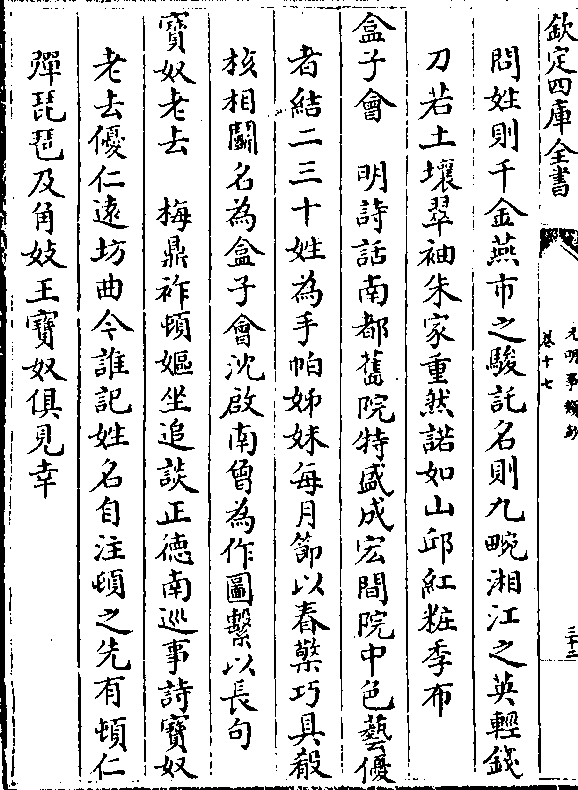 欽定四庫全書
元明事類鈔
卷十七
三十二
問姓則千金燕市之駿託名則九畹湘江之英輕錢
刀若土壤翠袖朱家重然諾如山邱紅粧季布
盒子會　明詩話南都舊院特盛成宏間院中色藝優
者結二三十姓為手帕姊妹每月節以春檠巧具殽
核相鬭名為盒子會沈啟南曾為作圖繫以長句
寶奴老去　梅鼎祚頓嫗坐追談正德南巡事詩寶奴
老去優仁遠坊曲今誰記姓名自注頓之先有頓仁
彈琵琶及角妓王寶奴俱見幸